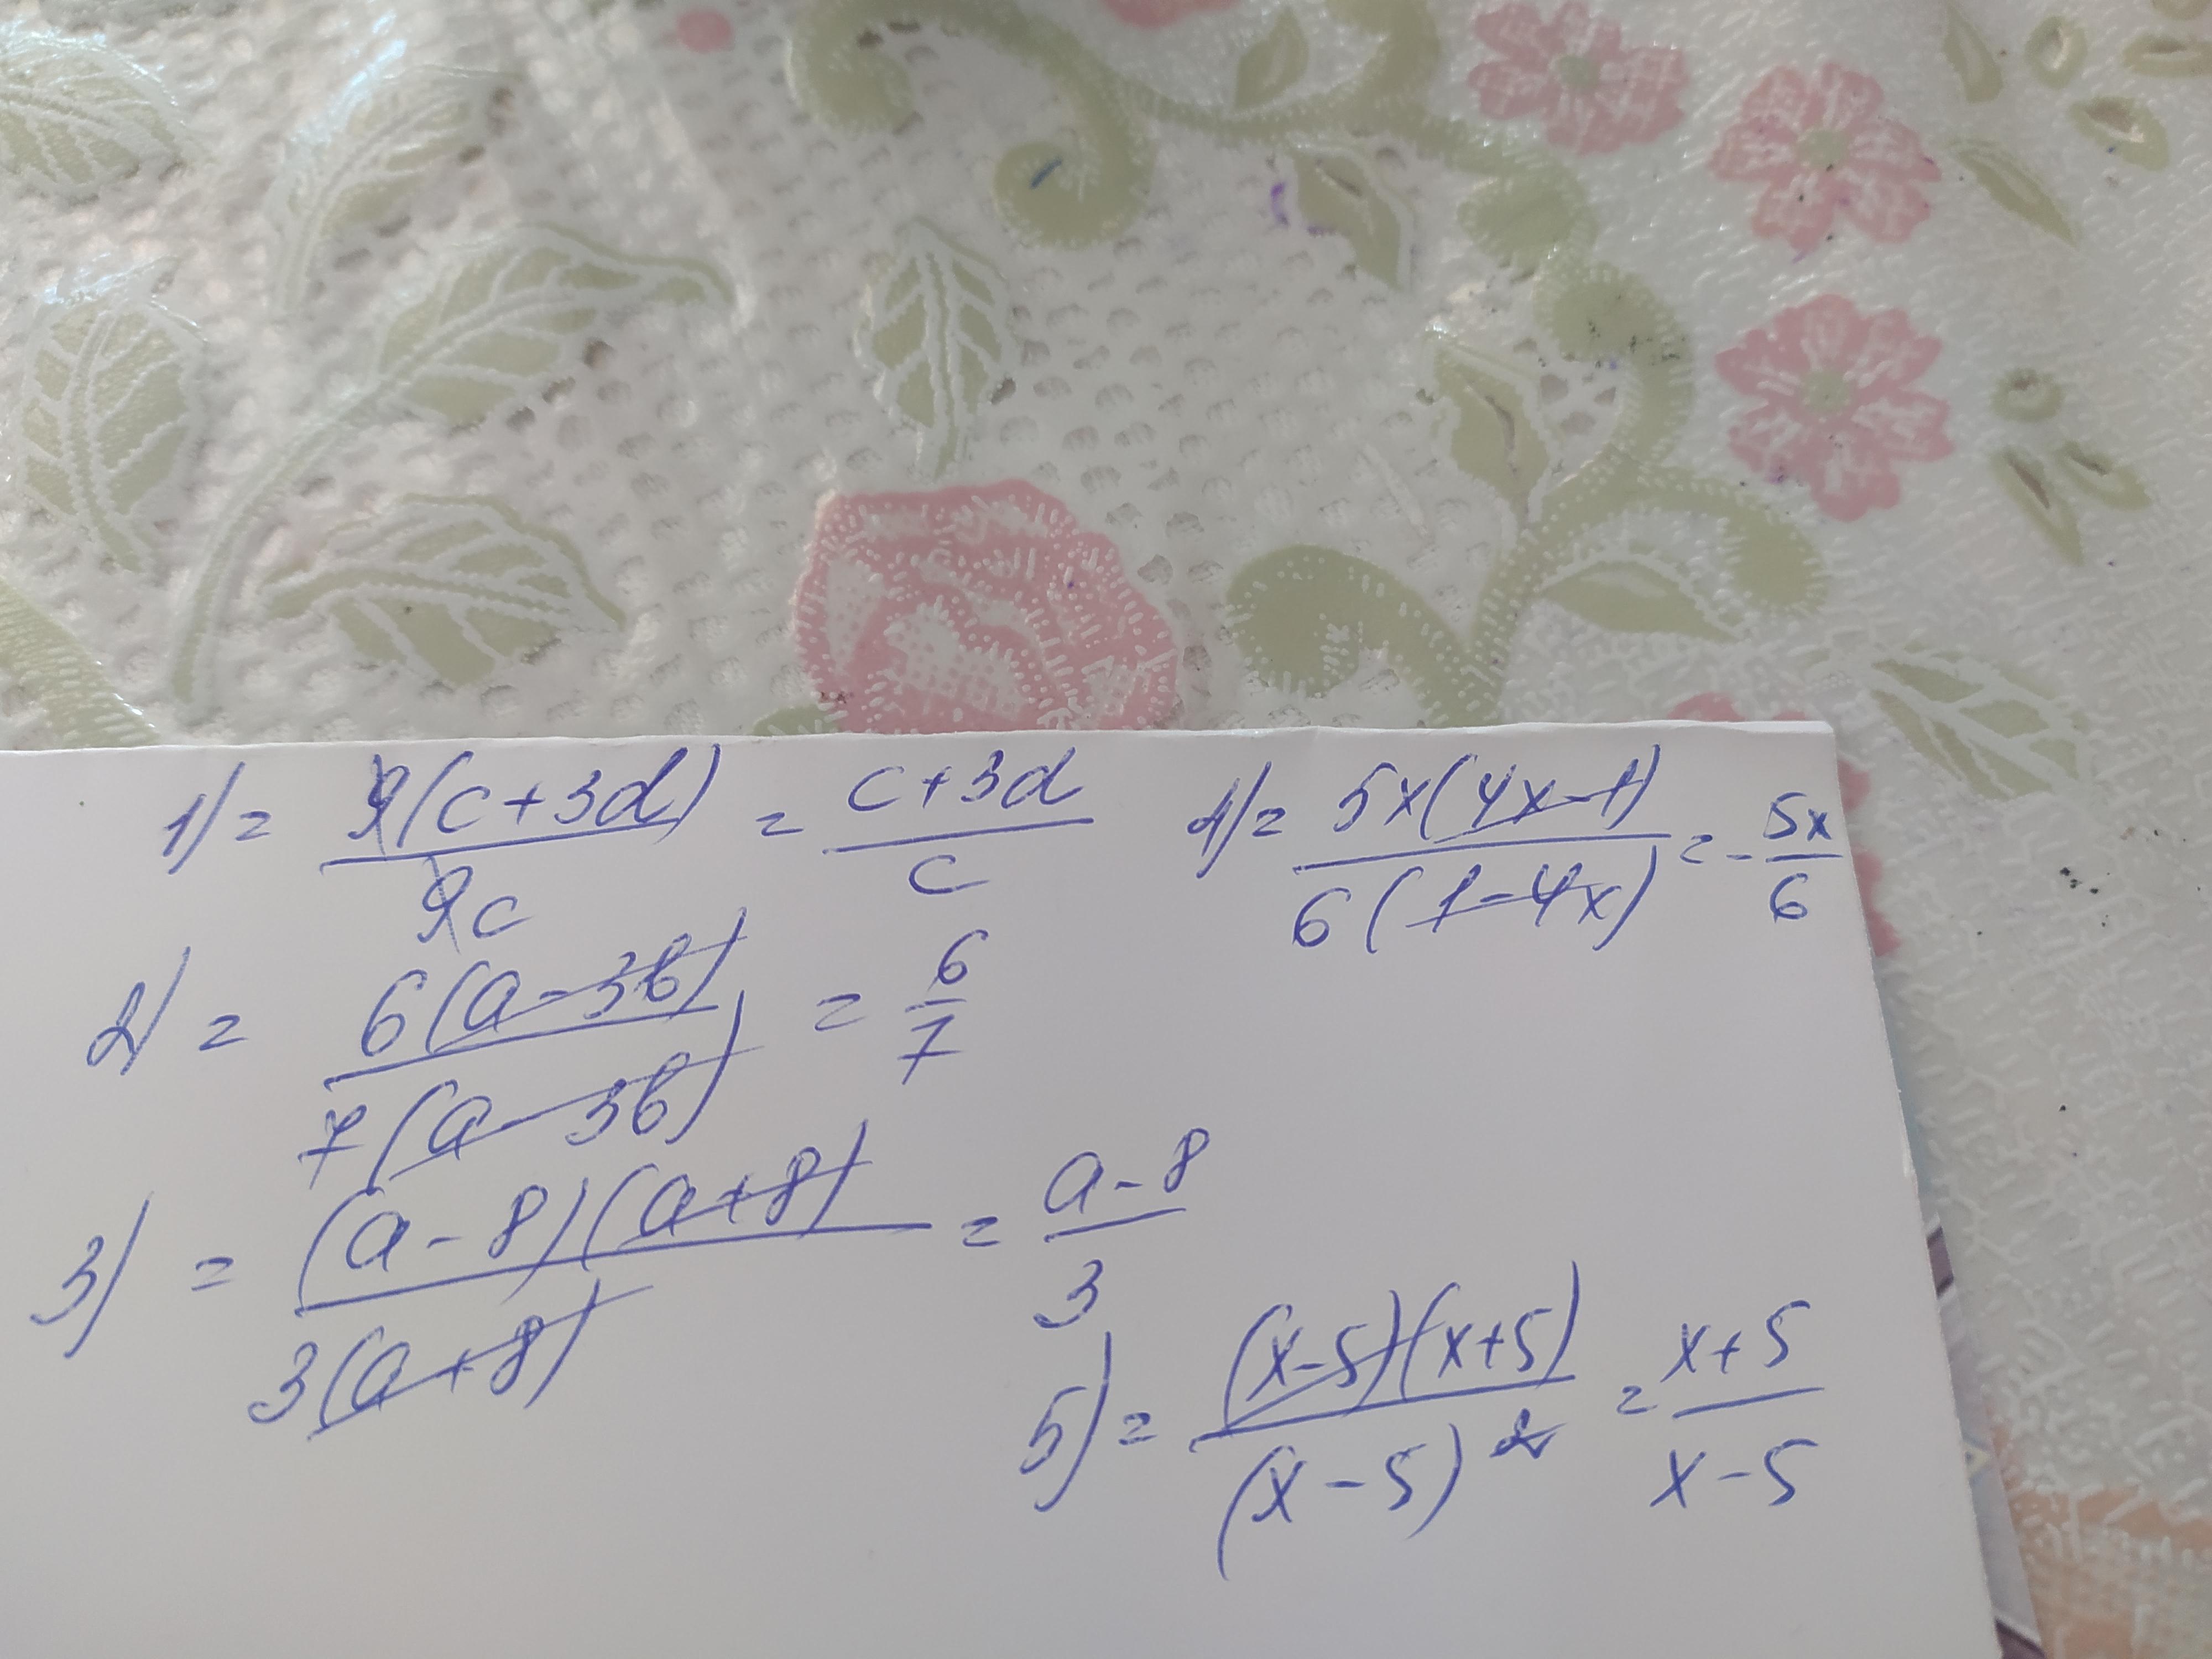 1) = 9(c+3d)/9c = c+3d/c
4) = 5x(4x-1)/6(1-4x) = -5x/6
2) = 6(a-3b)/7(a-3b) = 6/7
3) = (a-8)(a+8)/3(a+8) = a-8/3
5) = (x-5)(x+5)/(x-5)² = x+5/x-5